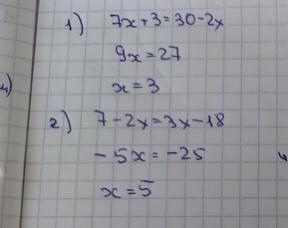 1) 7x+3=30-2x
9x=27
x=3
2) 7-2x=3x-18
-5x=-25
x=5